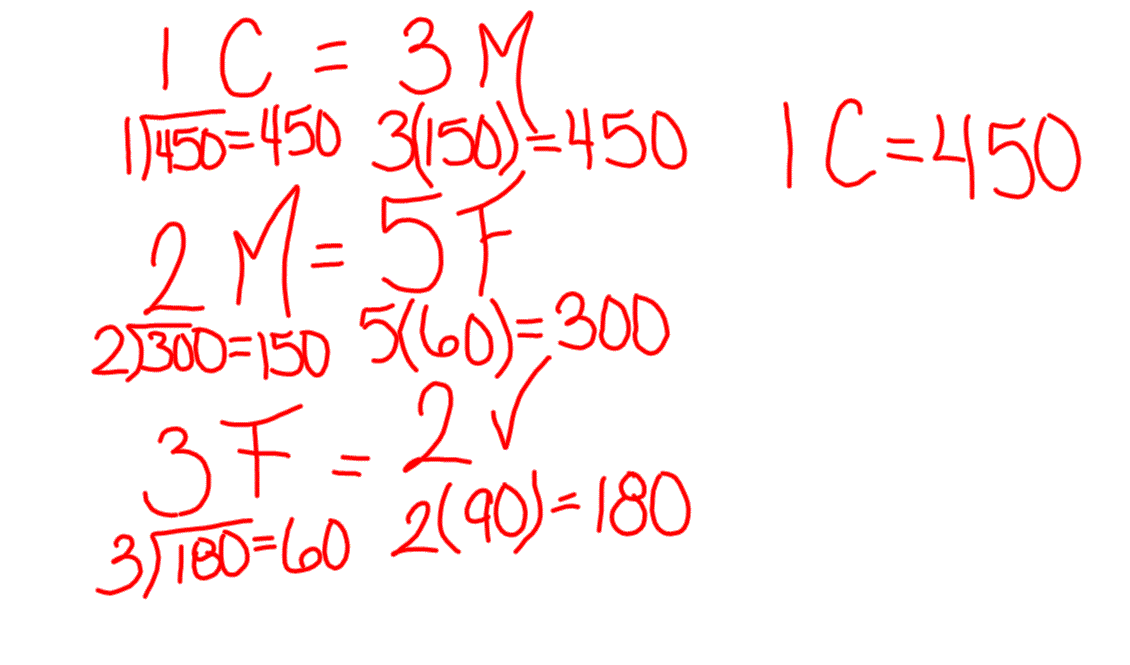 1 C = 3 M
1)450=450 3(150)=450 1 C=450
2 M = 5 F
2)300=150 5(60)=300
3 F = 2 V
3)180=60 2(90)=180